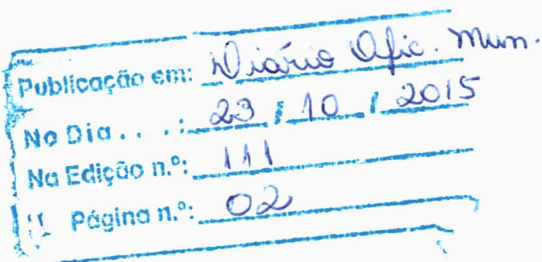 Publicação em: Diário Ofic. Mun.
No Dia....: 23 / 10 / 2015
Na Edição n.º: 111
Página n.º: 02